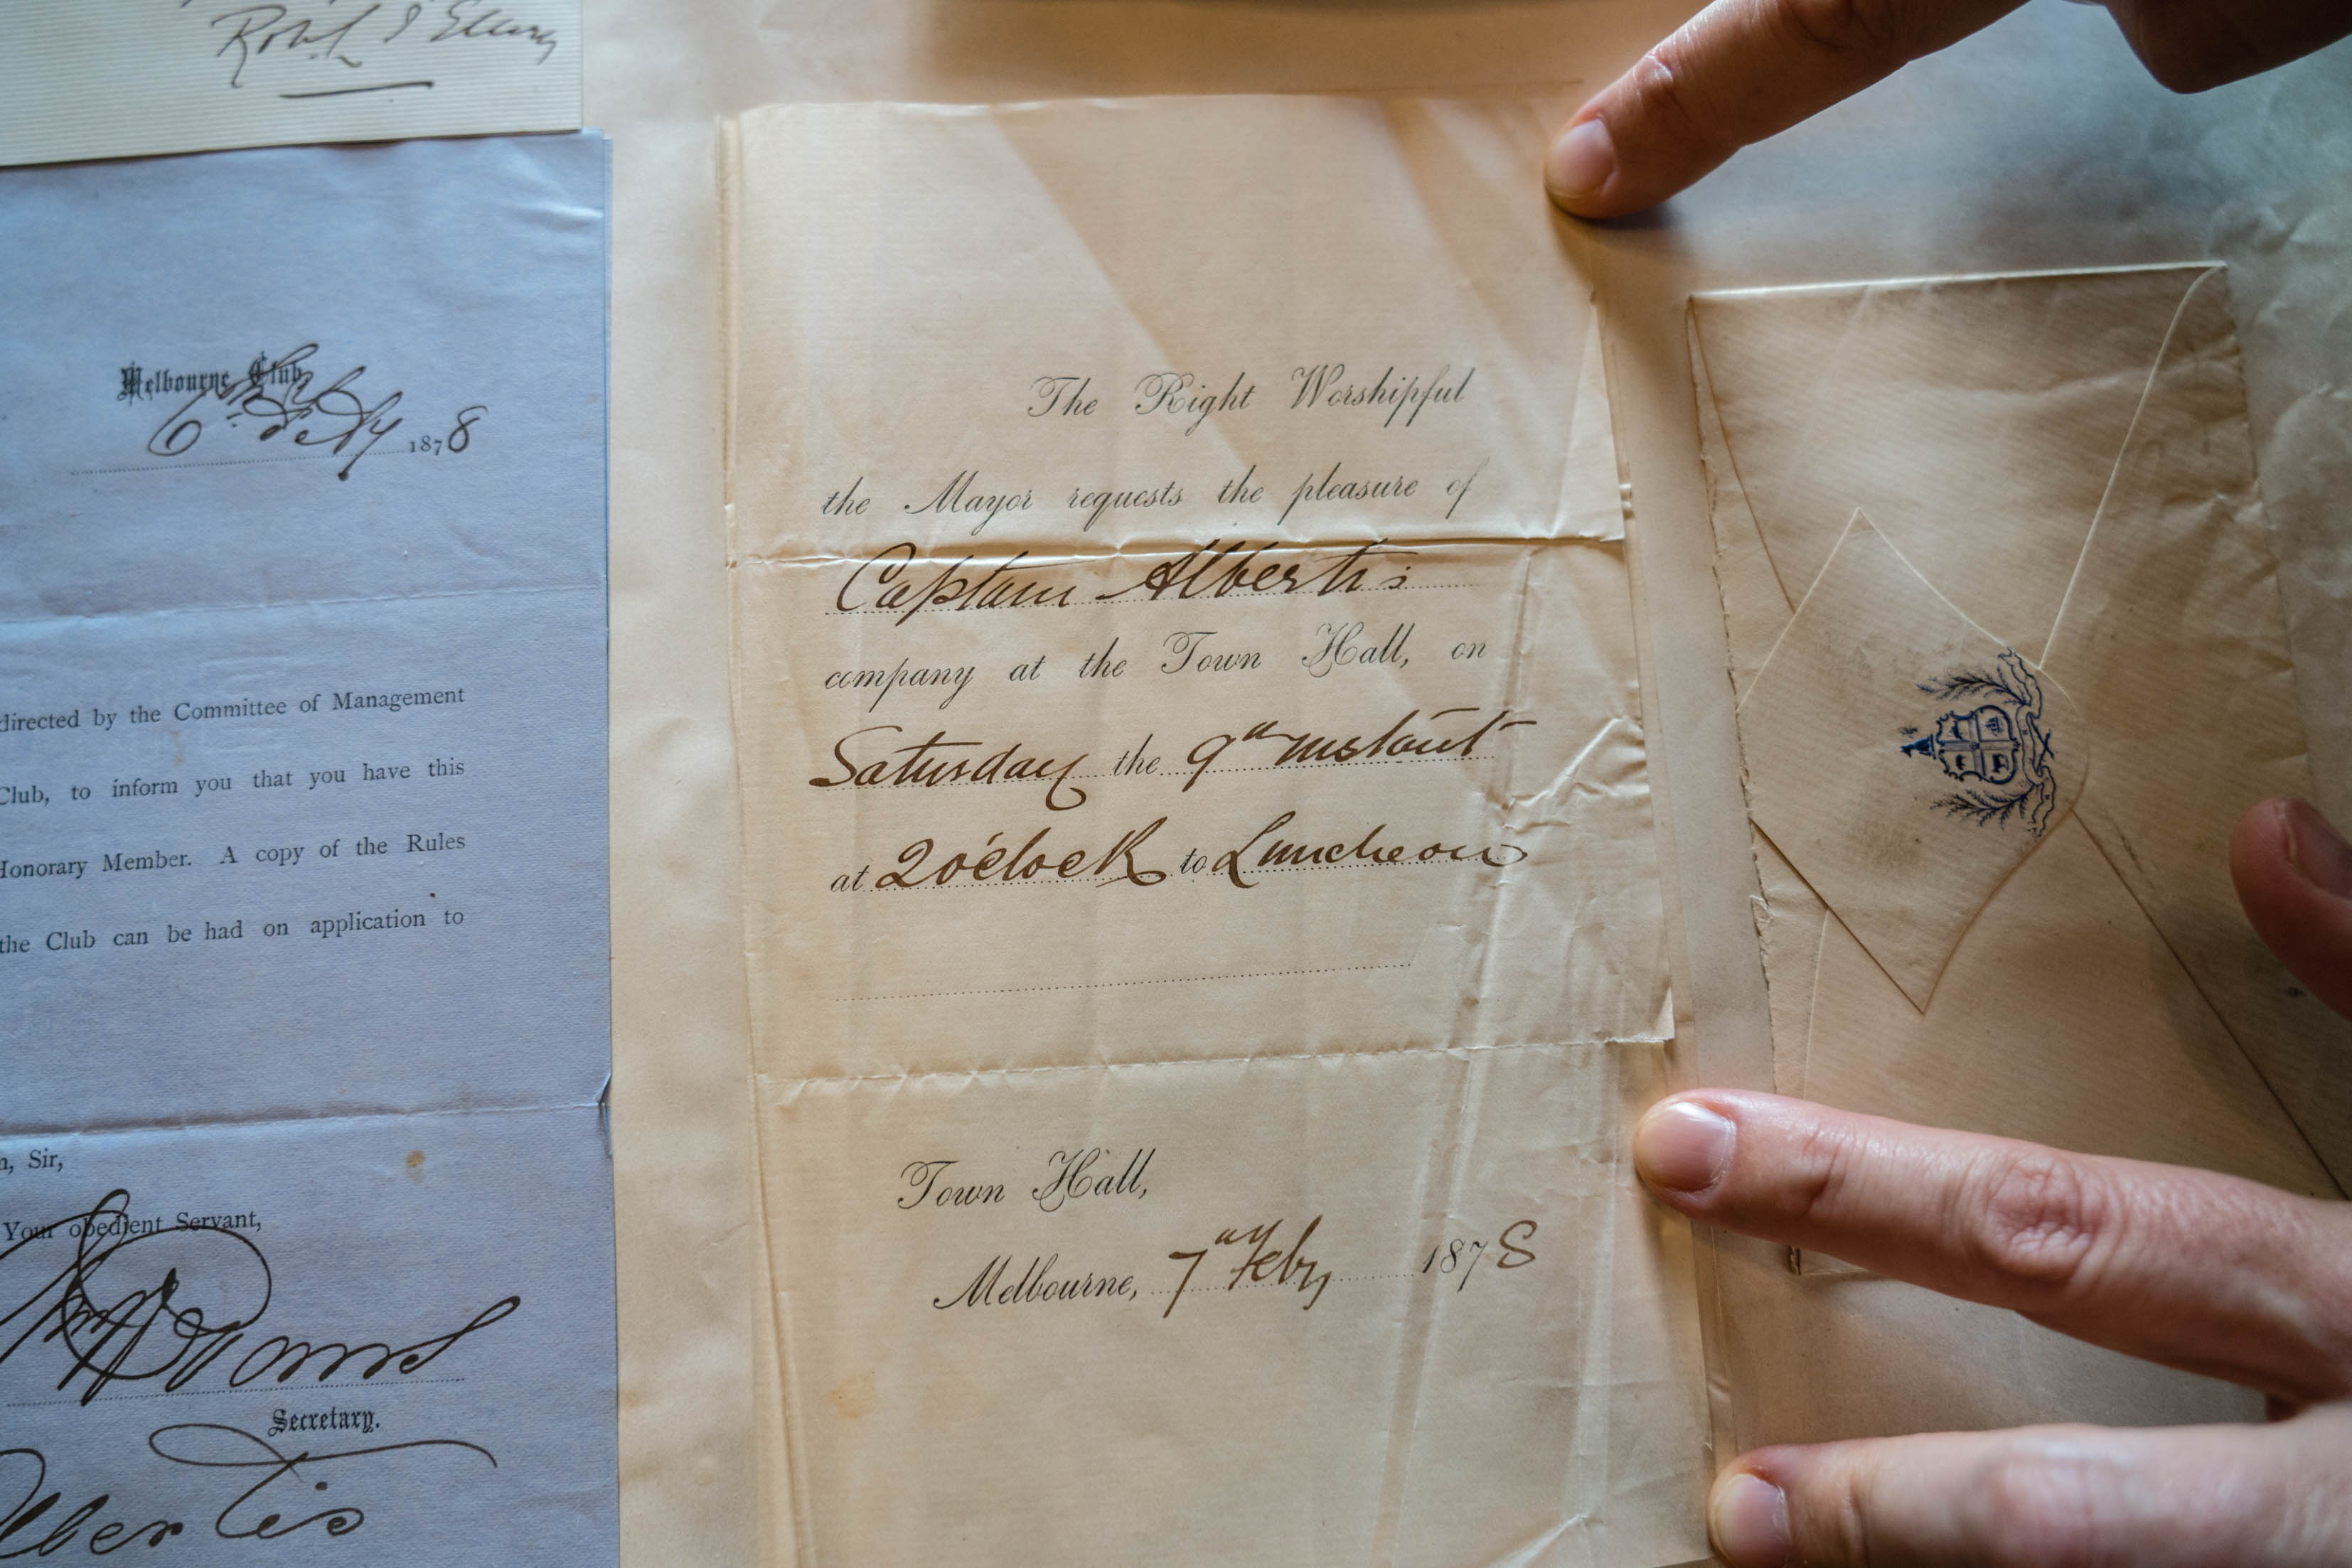 Robt L J Ellery
Melbourne Club
6th Feby 1878
directed by the Committee of Management
Club, to inform you that you have this
Honorary Member. A copy of the Rules
the Club can be had on application to
Sir,
Your obedient Servant,
Secretary.
The Right Worshipful
the Mayor requests the pleasure of
Captain Albertis
company at the Town Hall, on
Saturday the 9th instant
at 2 o'clock to Luncheon
Town Hall,
Melbourne, 7 Feby 1878